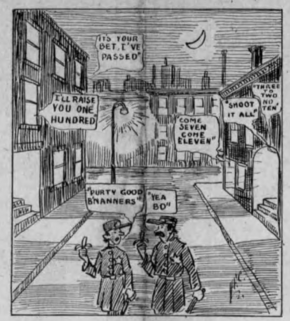 "IT'S YOUR
BET, I'VE
PASSED"
I'LL RAISE
YOU ONE
HUNDRED
"COME
SEVEN
COME
ELEVEN"
"SHOOT
IT ALL"
"THREE
TO
TWO
NO
TEN"
"PURTY GOOD
B'NANNERS"
"YEA
BO"